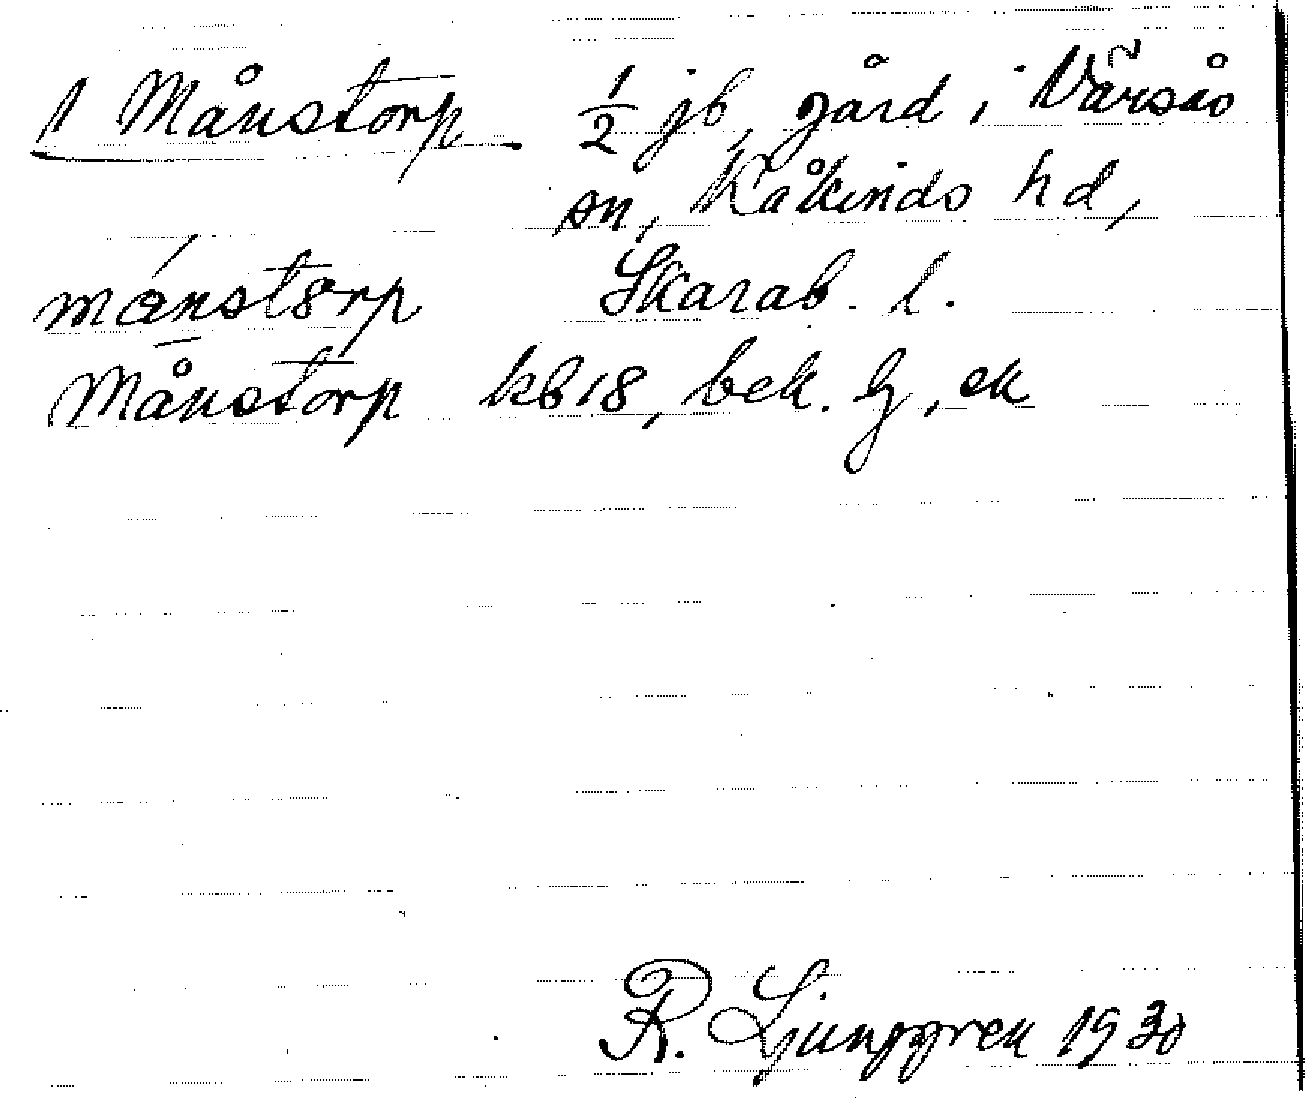 1 Månstorp 1/2 jb, gård i Värsås
sn, Kåkinds hd,
månstørp Skarab. l.
Månstorp kb18, bek. G, ek
R. Ljunggren 1930